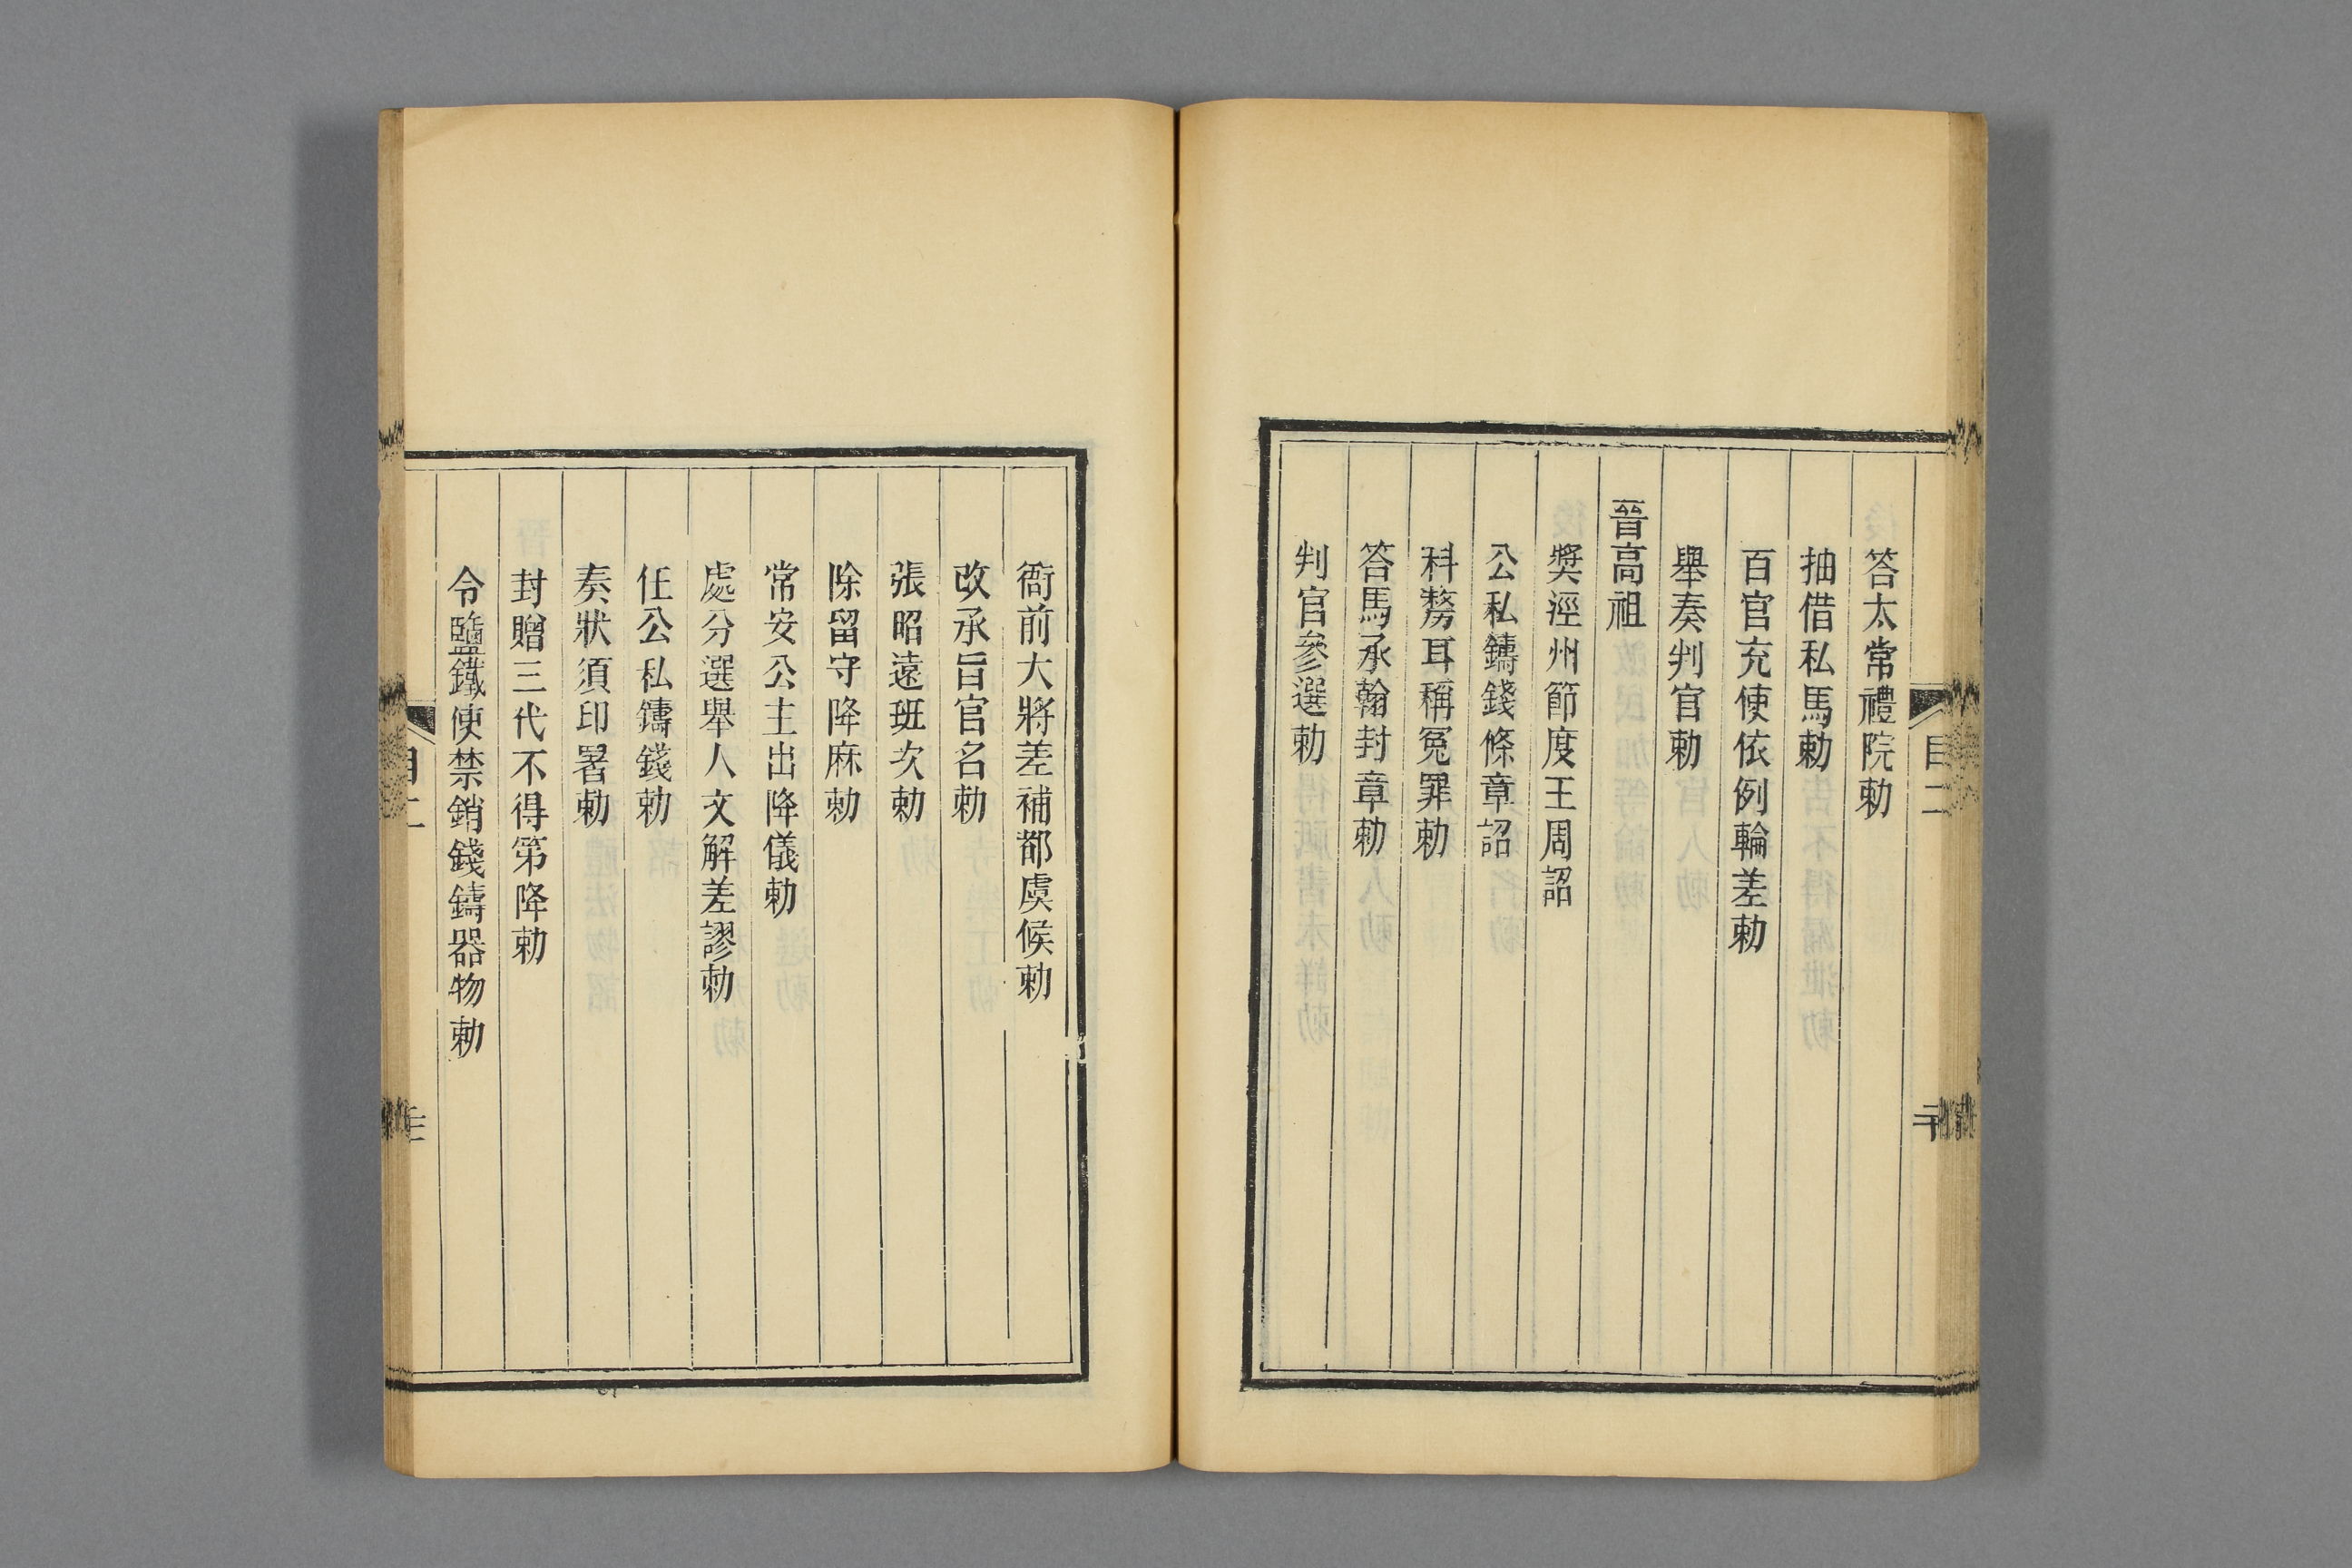 答太常禮院勅
抽借私馬勅
百官充使依例輪差勅
舉奏判官勅
晉高祖
獎涇州節度王周詔
公私鑄錢條章詔
科剺耳稱冤罪勅
答馬承翰封章勅
判官參選勅
衙前大將差補都虞候勅
改承旨官名勅
張昭遠班次勅
除留守降麻勅
常安公主出降儀勅
處分選舉人文解差謬勅
任公私鑄錢勅
奏狀須印署勅
封贈三代不得第降勅
令鹽鐵使禁銷錢鑄器物勅
目二